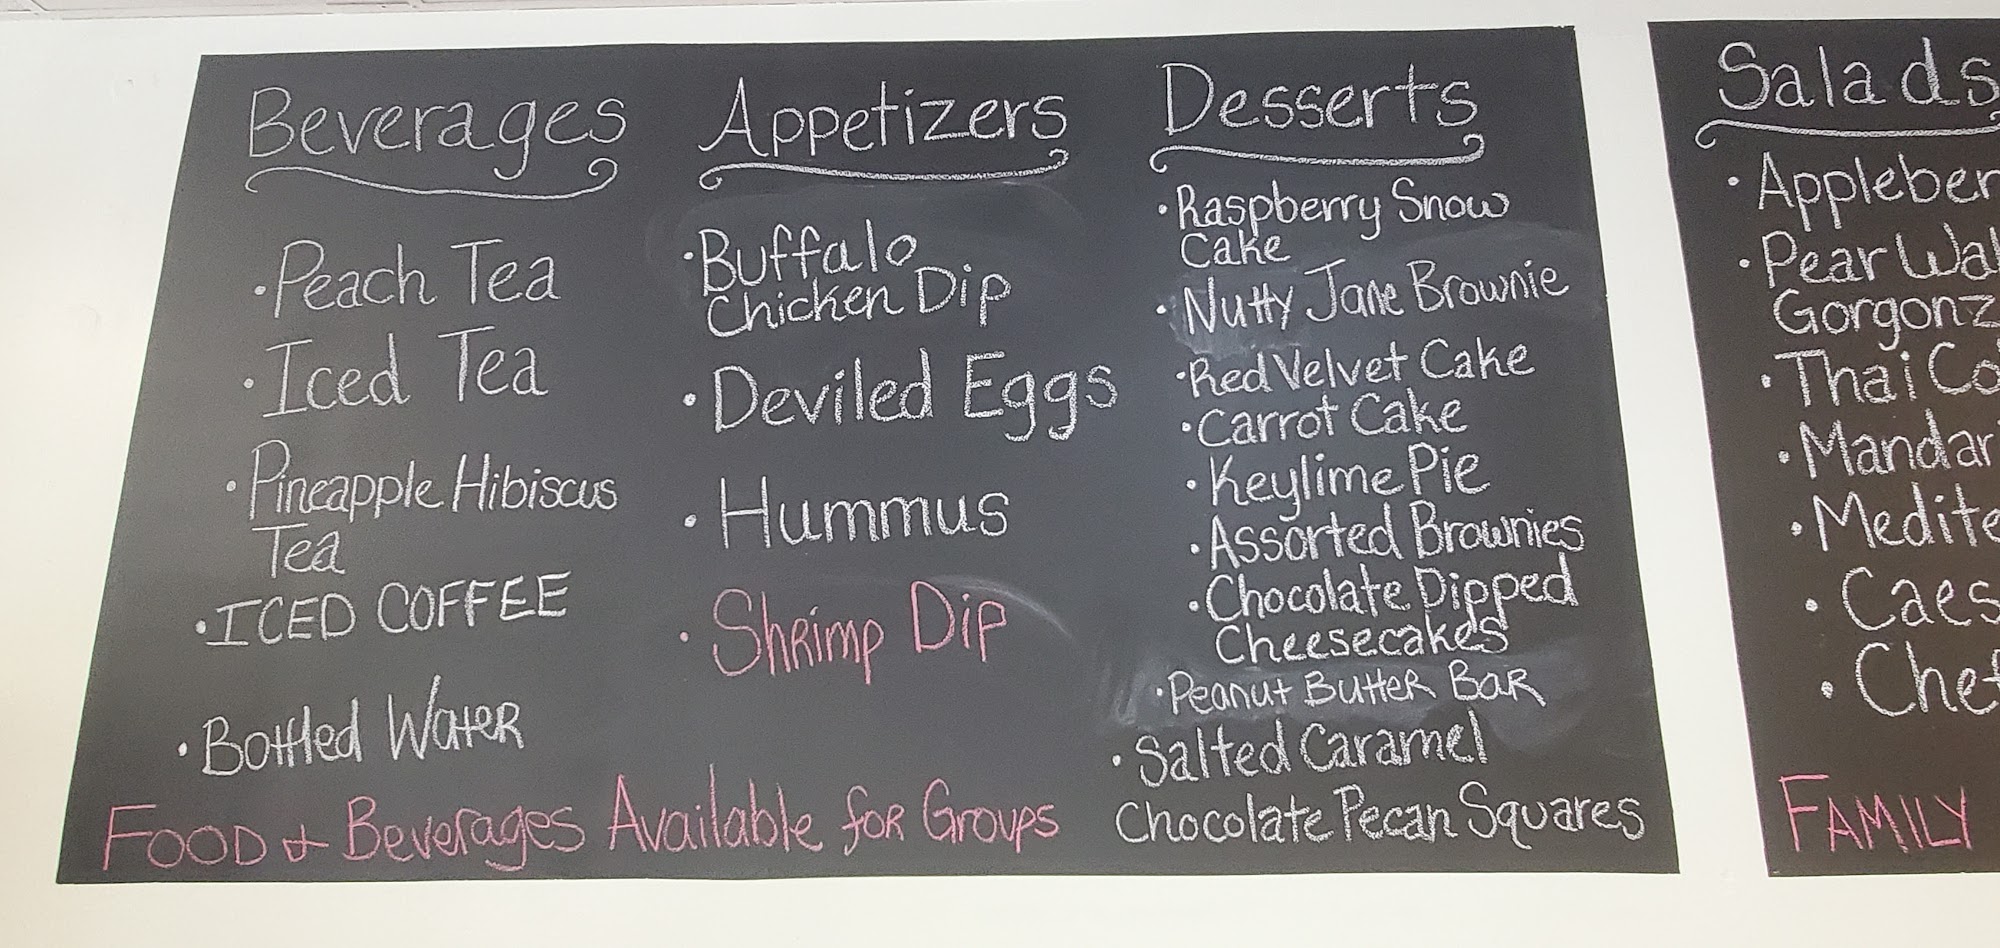 Beverages
• Peach Tea
• Iced Tea
• Pineapple Hibiscus
Tea
• ICED COFFEE
• Bottled Water
Appetizers
• Buffalo
Chicken Dip
• Deviled Eggs
• Hummus
• Shrimp Dip
Food & Beverages Available for Groups
Desserts
• Raspberry Snow
Cake
• Nutty Jane Brownie
• Red Velvet Cake
• Carrot Cake
• Keylime Pie
• Assorted Brownies
• Chocolate Dipped
Cheesecakes
• Peanut Butter Bar
• Salted Caramel
Chocolate Pecan Squares
Salads
• Appleber
• Pear Wal
Gorgonz
• Thai Co
• Mandar
• Medite
• Caes
• Chef
FAMILY